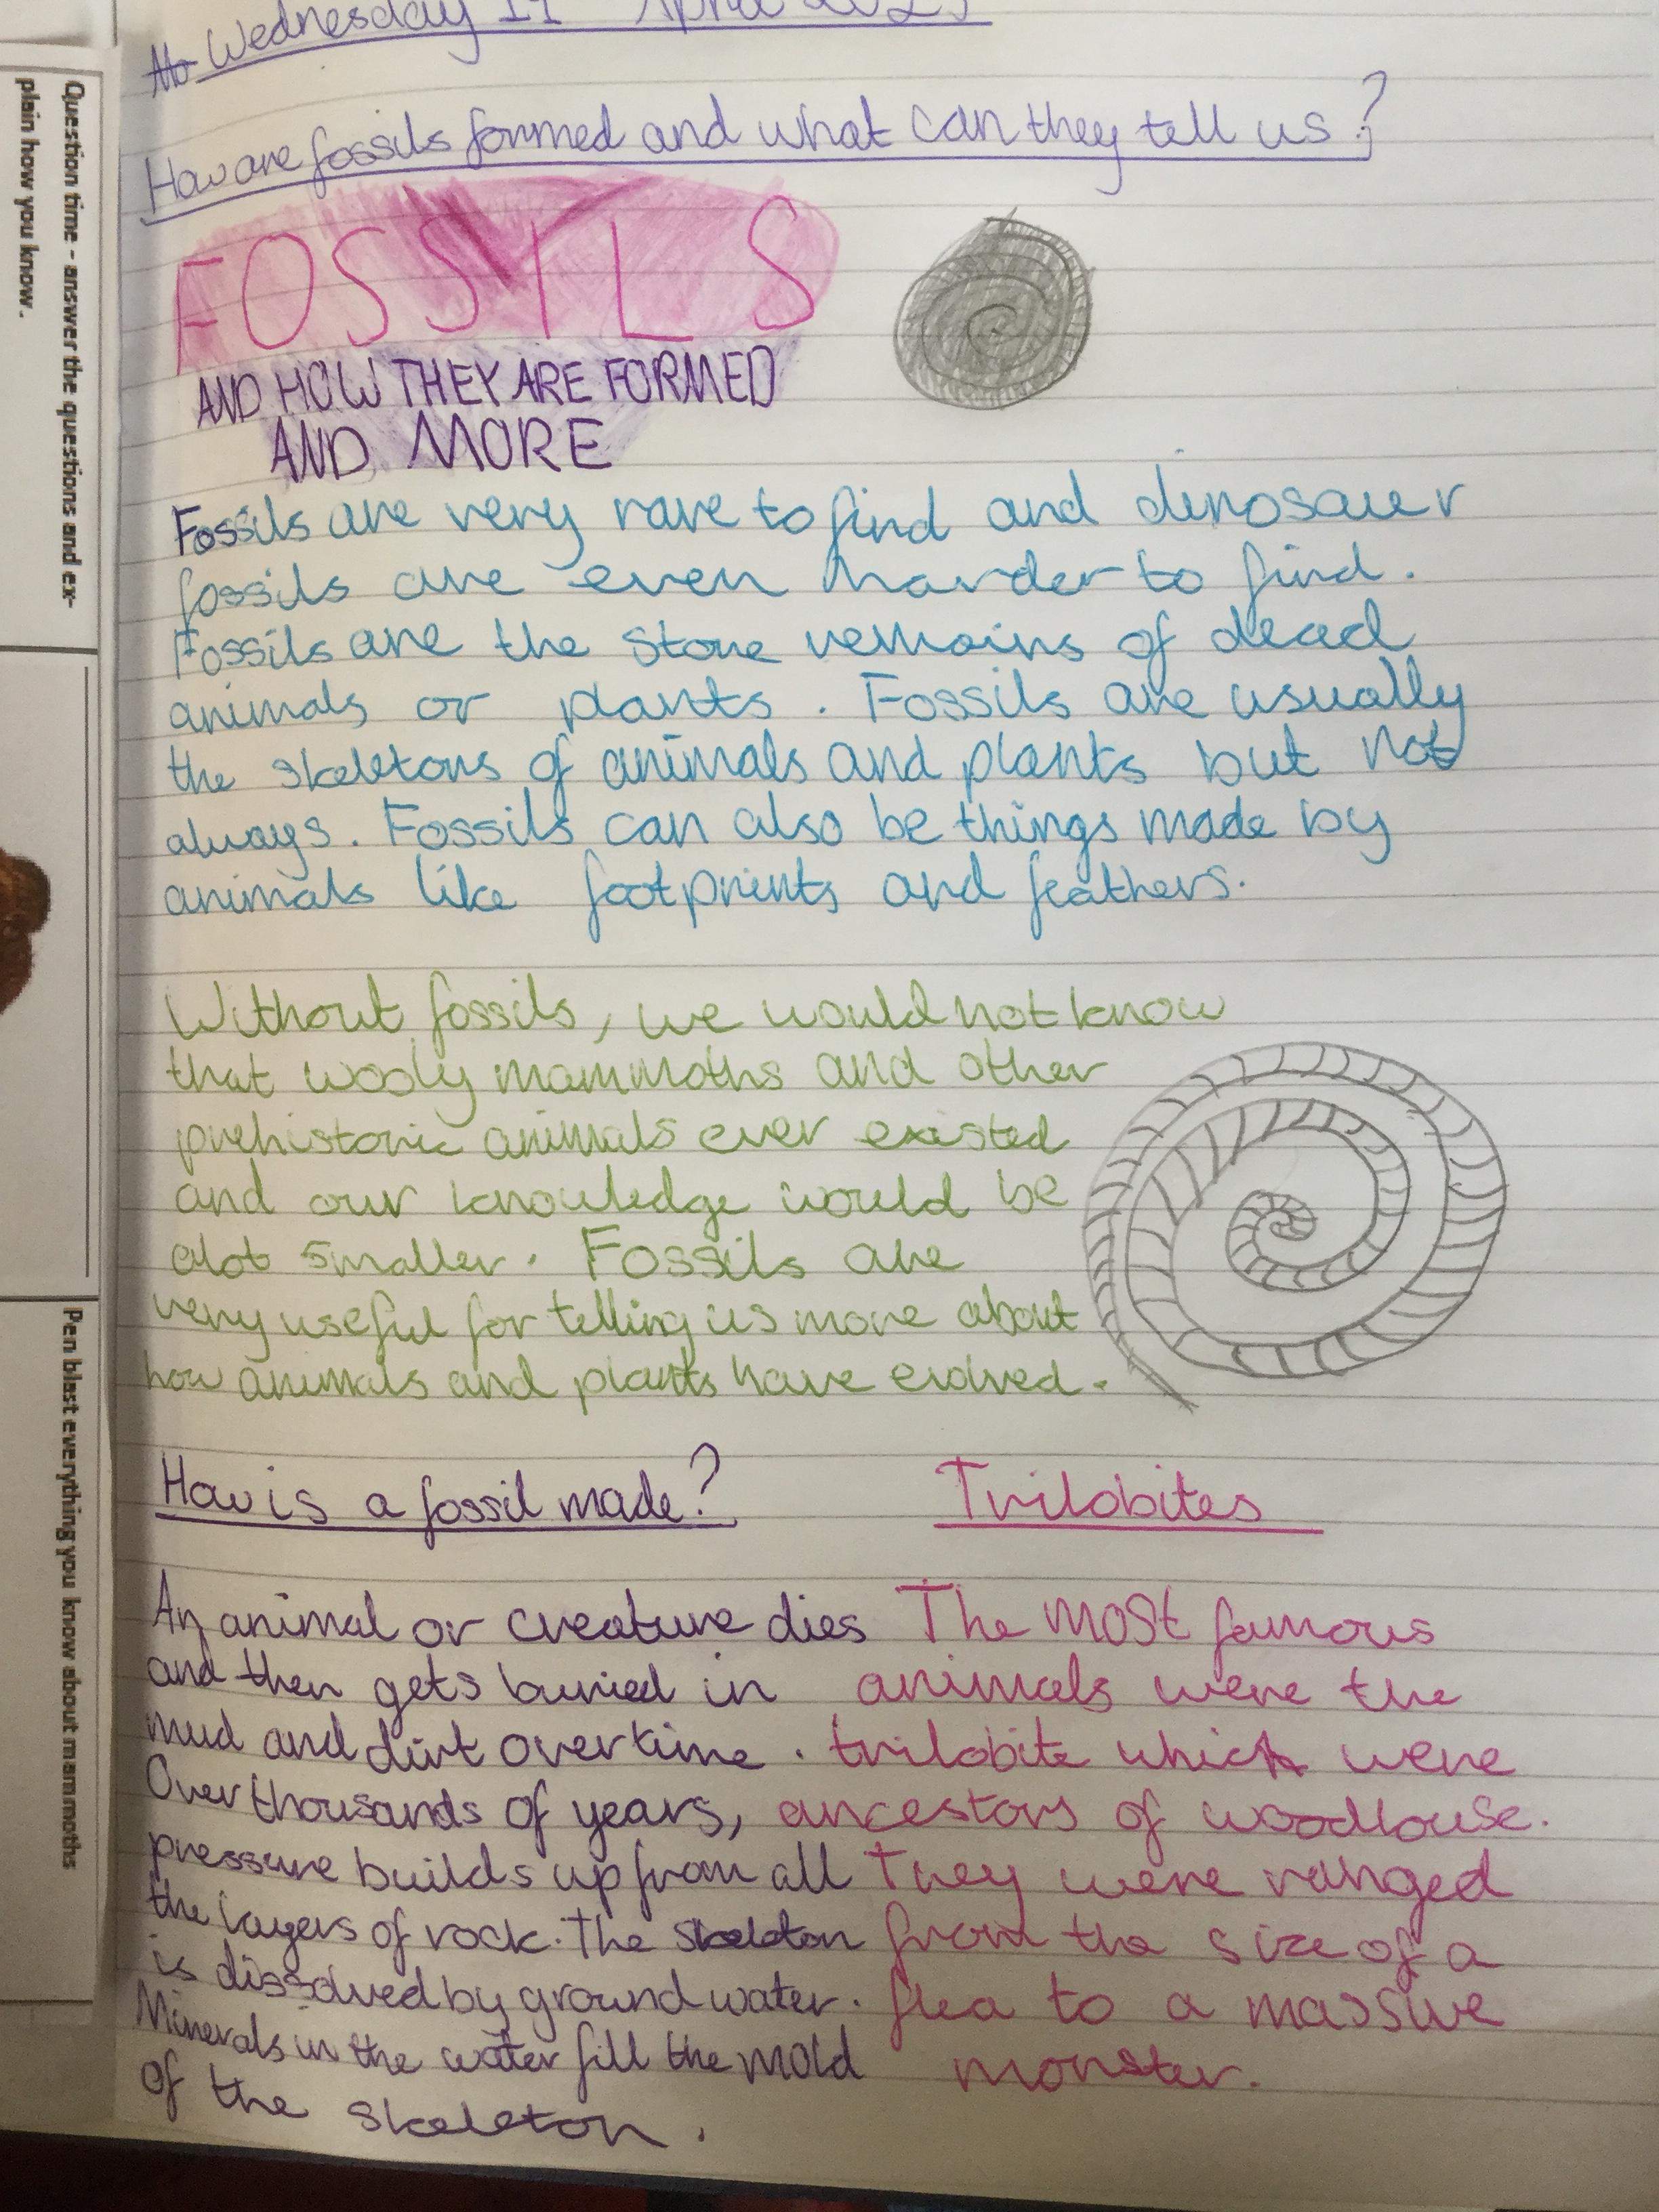 Wednesday April
How are fossils formed and what can they tell us?
FOSSILS
AND HOW THEY ARE FORMED
AND MORE
Fossils are very rare to find and dinosauer
fossils are even harder to find.
Fossils are the stone remains of dead
animals or plants. Fossils are usually
the skeletons of animals and plants but not
always. Fossils can also be things made by
animals like footprints and feathers.
Without fossils, we would not know
that wooly mammoths and other
prehistoric animals ever existed
and our knowledge would be
alot smaller. Fossils are
very useful for telling us more about
how animals and plants have evolved.
How is a fossil made?
An animal or creature dies
and then gets buried in
mud and dirt over time.
Over thousands of years,
pressure builds up from all
the layers of rock. The skeleton
is dissolved by ground water.
Minerals in the water fill the mold
of the skeleton.
Trilobites
The most famous
animals were the
trilobite which were
ancestors of woodlouse.
They were ranged
from the size of a
flea to a massive
monster.
Question time - answer the questions and ex-
plain how you know.
Pen blast everything you know about mammoths